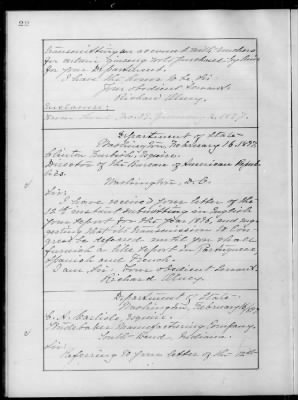 22
transmitting an account with vouchers
for certain
for your Department.
I have the honor to be, Sir:
Your obedient servant
Richard Olney.
Enclosure:
Department of State
Washington, February 16, 1897.
Clinton Furbish, Esquire.
Director of the Bureau of American Repub-
lics.
Washington, D.C.
Sir:
I have received your letter of the
12th instant submitting in English
your report for the year 1896, and sug-
gesting that its transmission to Con-
gress be deferred until you shall
furnish a like report in Portuguese
Spanish and French.
I am, Sir: Your obedient servant.
Richard Olney
Department of State
Washington, February
C. A. Carlisle, Esquire.
Studebaker Manufacturing Company,
South Bend, Indiana.
Sir:
Referring to your letter of the 12th